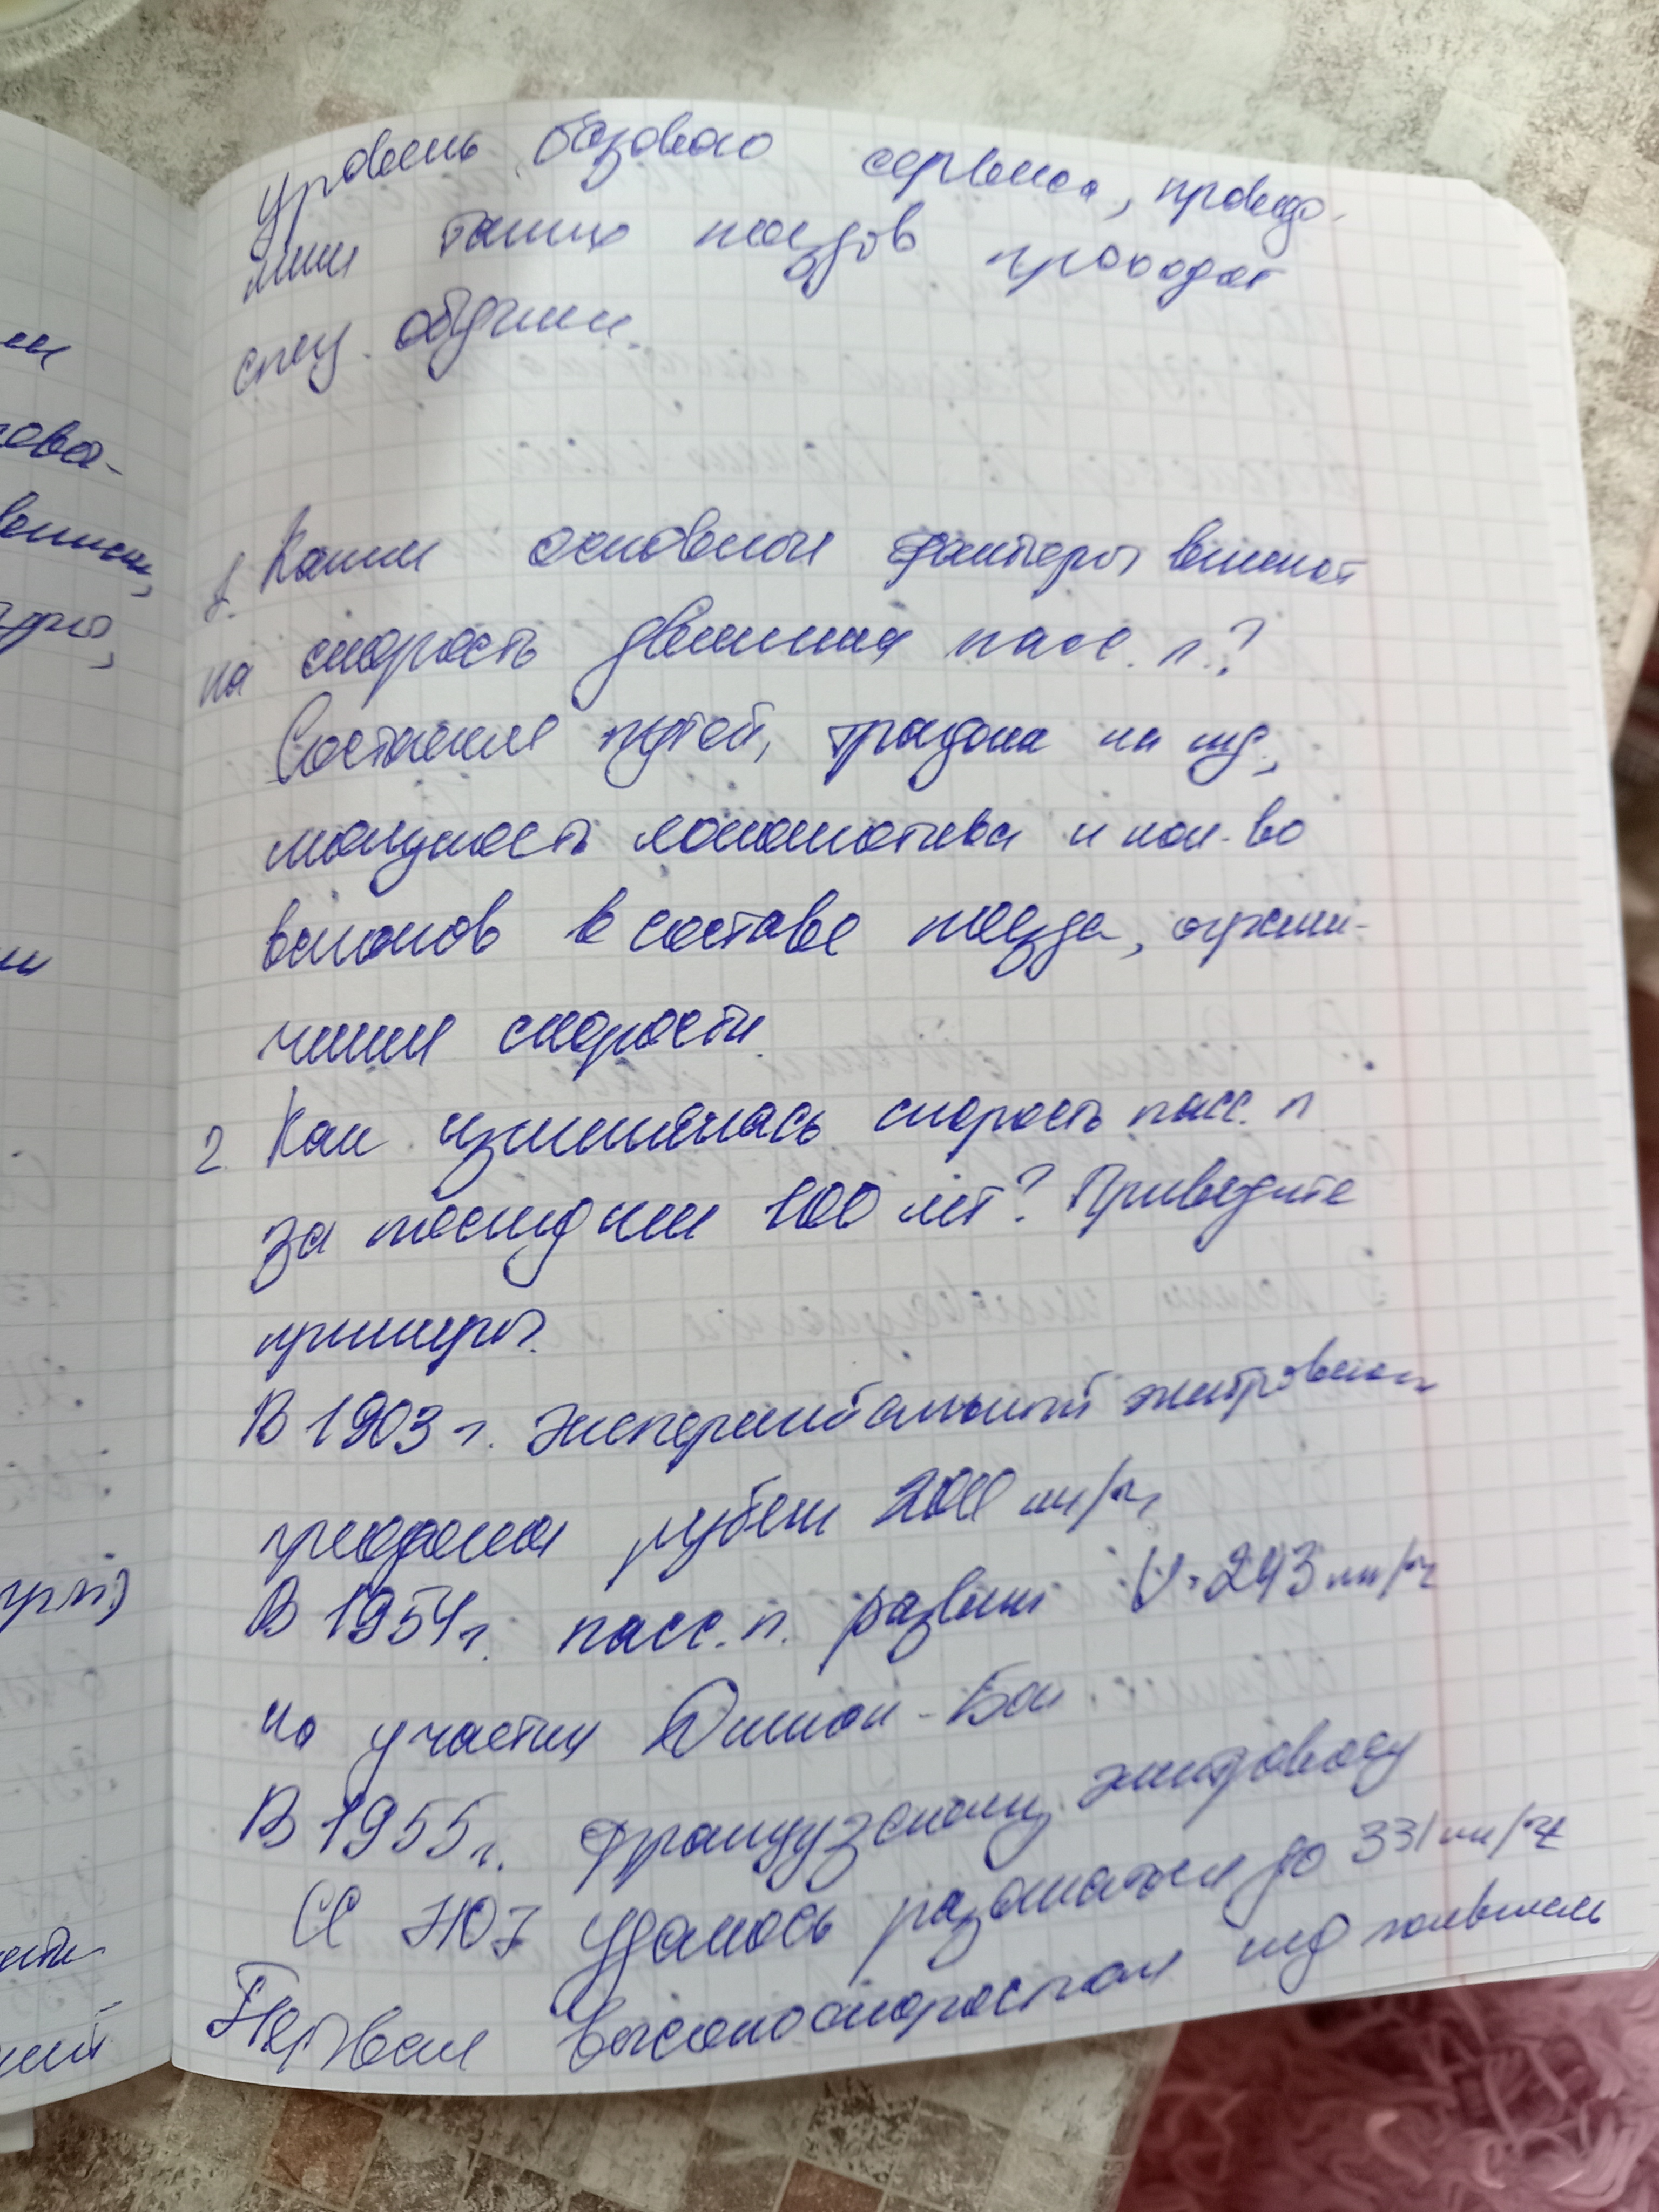 уровень базового сервиса, проводо-
ники таких поездов проходят
спец. обучение.
1. Какие основные факторы влияют
на скорость движения пасс. п.?
Состояние путей, на жд,
мощность локомотива и кол-во
вагонов в составе поезда, ограни-
чения скорости
2. Как изменялась скорость пасс. п
за последние 100 лет? Приведите
примеры.
В 1903 г. экспериментальный электровагон
преодолел рубеж 200 км/ч,
В 1954 г. пасс. п. развил V = 243 км/ч
на участке Дижон - Бон
В 1955 г. французскому электровозу
СС 7107 удалось разогнаться до 331 км/ч
Первая высокоскоростная жд появилась
ми
това-
м
ий